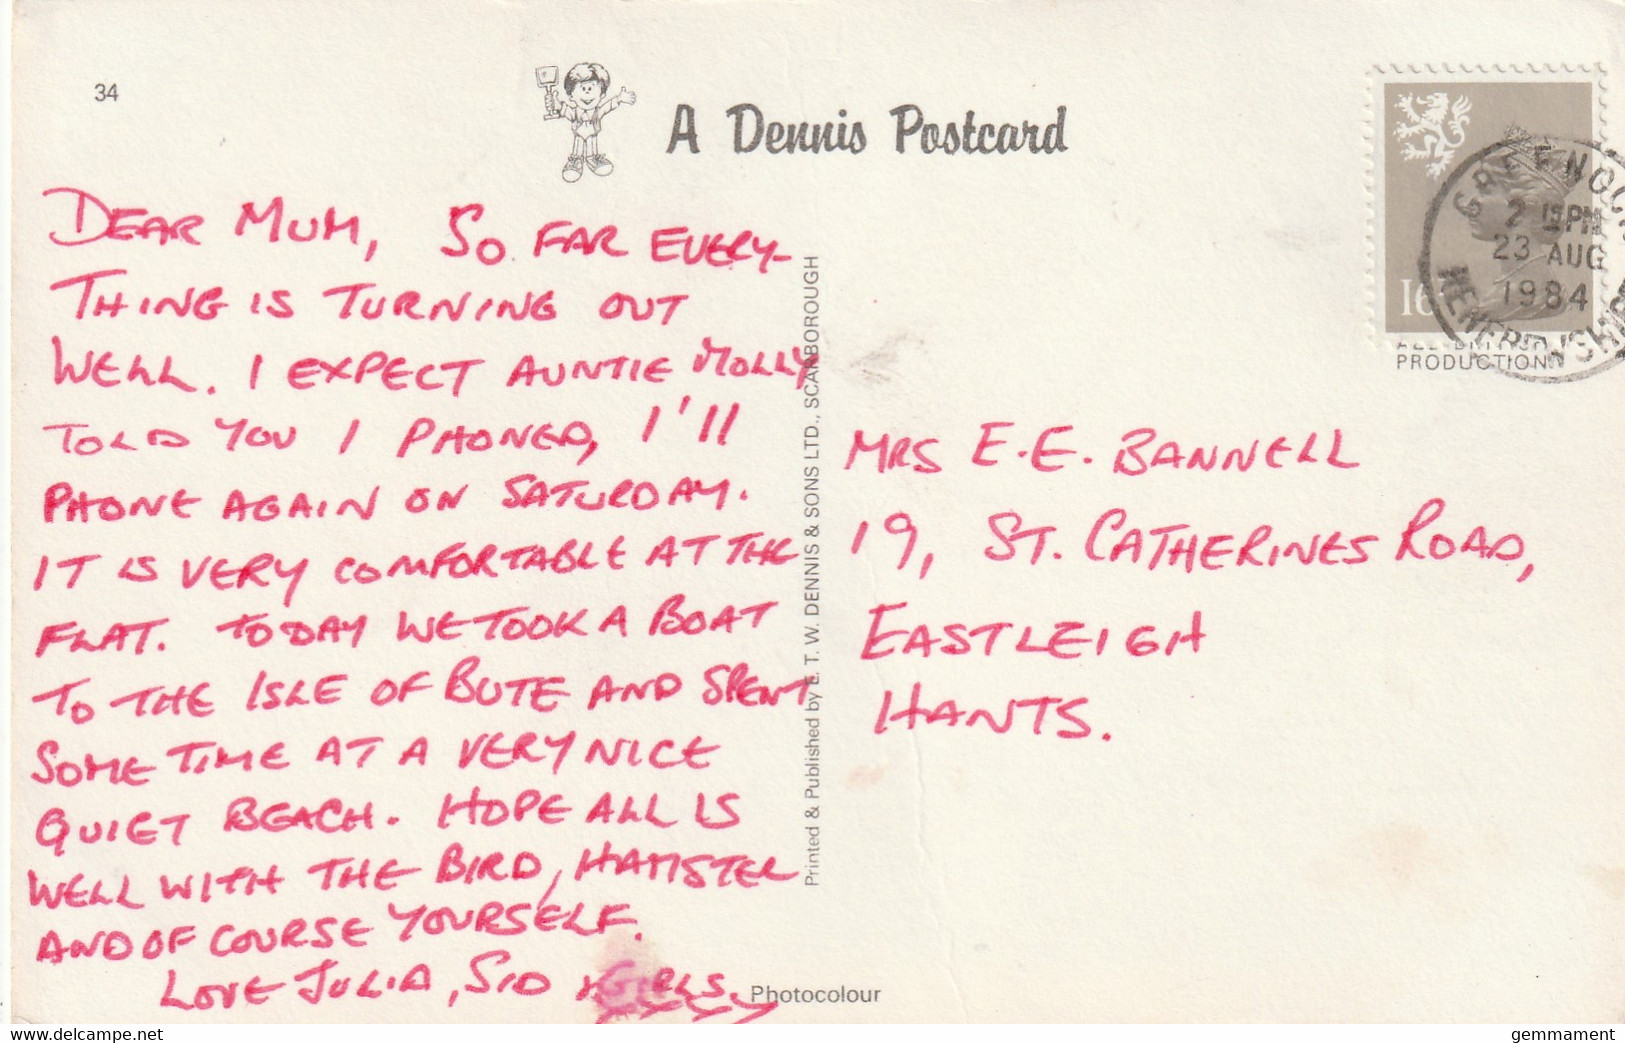 34
A Dennis Postcard
DEAR MUM, SO FAR EVERY-
THING IS TURNING OUT
WELL. I EXPECT AUNTIE MOLLY
TOLD YOU I PHONED, I'll
PHONE AGAIN ON SATURDAY.
IT IS VERY COMFORTABLE AT THE
FLAT. TODAY WE TOOK A BOAT
TO THE ISLE OF BUTE AND SPENT
SOME TIME AT A VERY NICE
QUIET BEACH. HOPE ALL IS
WELL WITH THE BIRD, HAMSTER
AND OF COURSE YOURSELF.
LOVE JULIA, SID & GIRLS.
Printed & Published by E. T. W. DENNIS & SONS LTD., SCARBOROUGH
Photocolour
16
GREENOCK
2 15 PM
23 AUG
1984
RENFREWSHIRE
ALL BRITISH
PRODUCTION
MRS E.E. BANNELL
19, ST. CATHERINES ROAD,
EASTLEIGH
HANTS.
gemmament